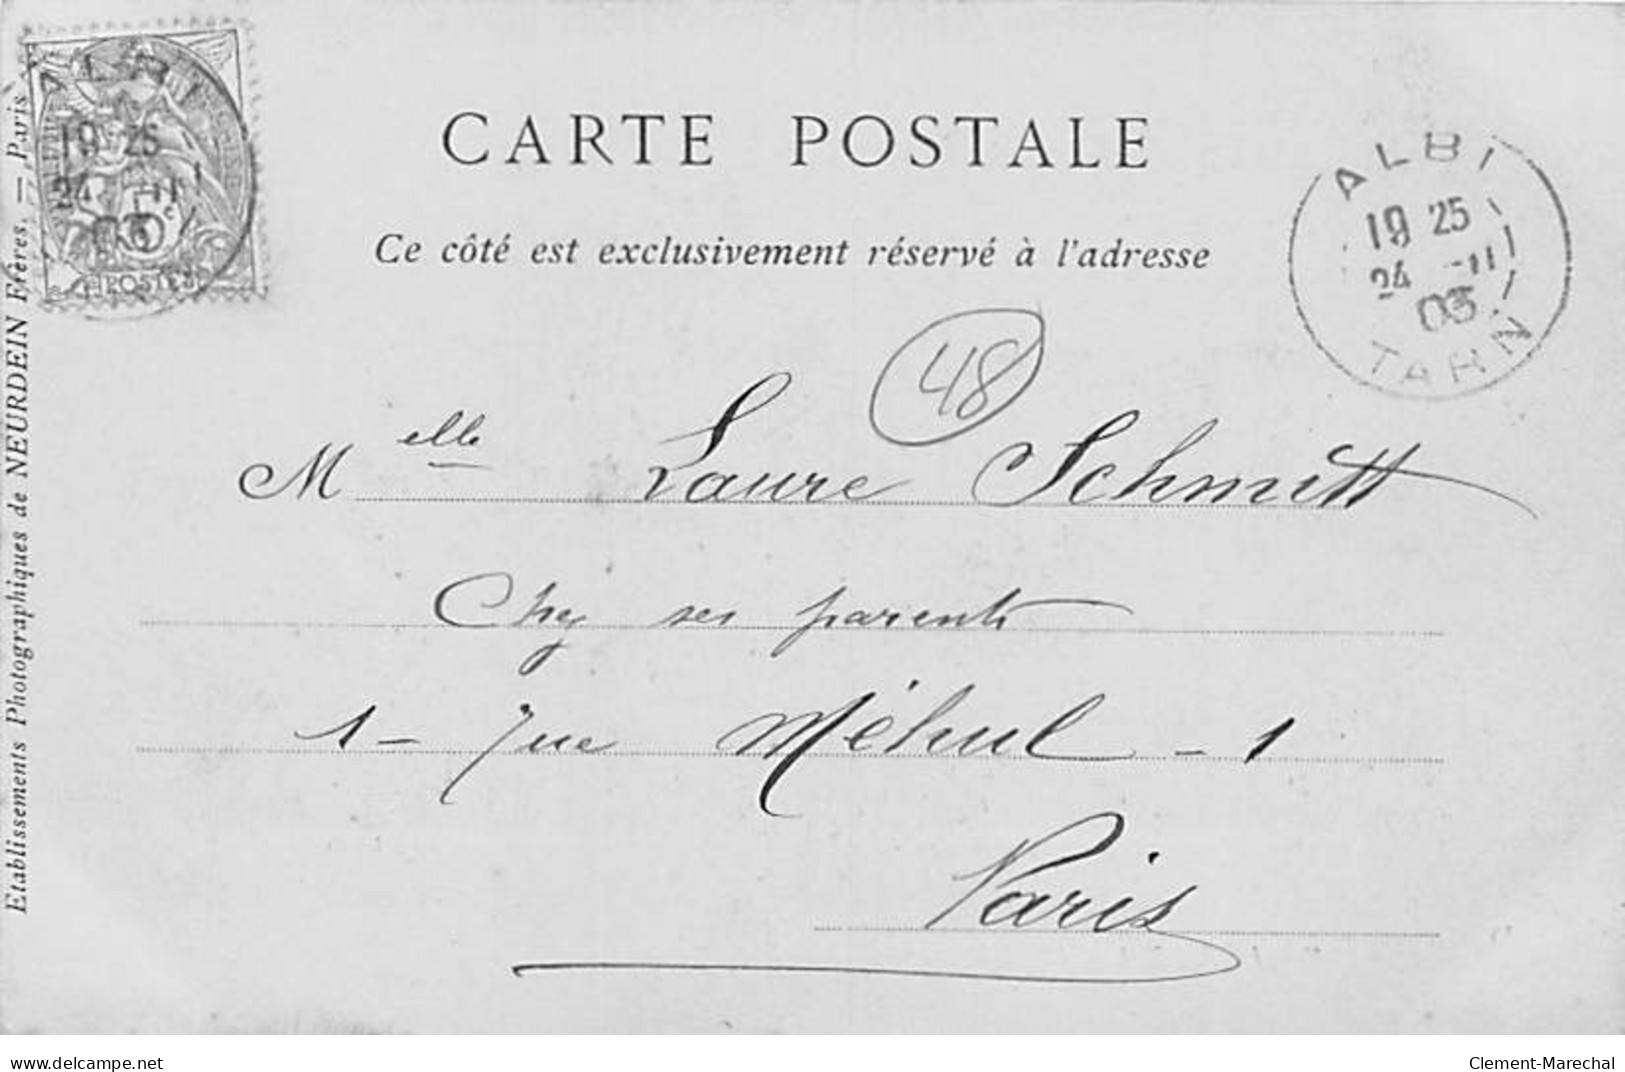 CARTE POSTALE
Ce côté est exclusivement réservé à l'adresse
ALBI
19 25
24 -11
03
TARN
ALBI
19 25
24 -11
03
5c
POSTES
48
Melle Laure Schmitt
Chez ses parents
1 - rue Méhul - 1
Paris
Etablissements Photographiques de NEURDEIN Frères. — Paris
www.delcampe.net
Clement-Marechal